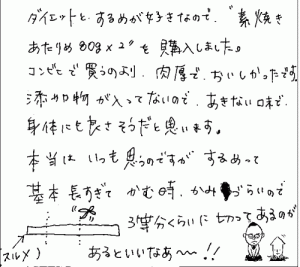 ダイエットと、するめが好きなので、"素焼き
あたりめ 80g×2"を購入しました。
コンビニで買うのより、肉厚で、おいしかったです。
添加物が入ってないので、あきない味で、
身体にも良さそうだと思います。
本当はいつも思うのですがするめって
基本長すぎてかむ時、かみづらいので
3等分くらいに切ってあるのが
(スルメ)
あるといいなあ〜!!